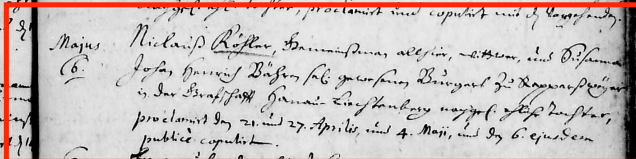 proclamirt und copulirt
Majus Niclauß Köhler, Gemeinsman allhier, wittwer, und Susanna
6. Johan Henrich Bähren sel. gewesenen Burgers zu
in der Grafschafft Hanau Liechtenberg nachgel. ehliche Tochter,
proclamirt den 21. und 27. Aprilis, und 4. Maji, und den 6. ejusdem
publicè copulirt.